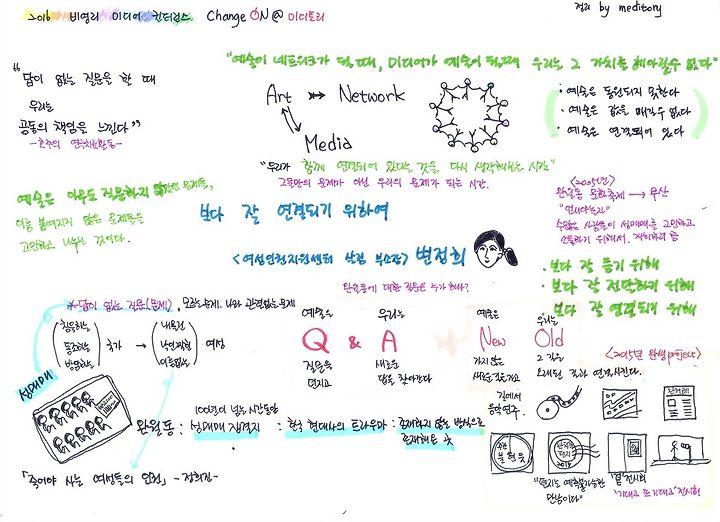 2016 비영리 미디어 컨퍼런스 Change ON @ 미디토리
정리 by meditory
"답이 없는 질문을 할 때
우리는
공동의 책임을 느낀다"
"예술이 네트워크가 될 때, 미디어가 예술이 될 때 우리는 그 가치를 헤아릴 수 없다"
Art → Network
Media
· 예술은 동원되지 못한다
· 예술은 값을 매길 수 없다
· 예술은 연결되어 있다
"우리가 함께 연결되어 있다는 것을 다시 생각해보는 시간"
그들만의 문제가 아닌 우리의 문제가 되는 시간.
예술은 아무도 질문하지 않았던 문제들,
이름 붙여지지 않은 문제들을
고민하고 나누는 것이다.
보다 잘 연결되기 위하여
<여성인권지원센터 살림 부소장> 변정희
완월동에 대한 질문은 누가 하나?
<2005년>
완월동 문화축제 → 무산
"언니야 놀자"
수많은 사람들이 성매매를 고민하고
소통하기 위해서
· 보다 잘 듣기 위해
· 보다 잘 전달하기 위해
보다 잘 연결되기 위해
* 답이 없는 질문(문제), 모르는 문제, 나와 관련없는 문제
침묵하는
동조하는
방관하는
국가 →
내쫓긴
낙인찍힌
이름없는
여성
성매매
예술은
Q
질문을
던지고
&
우리는
A
새로운
답을 찾아간다
예술은
New
가지 않는
새로운 길을 가고
우리는
Old
그 길을
오래된 길과 연결시킨다.
<2015년 완월 project>
길에서
음악연주.
완월동 :
100년이 넘는 시간동안
성매매 집결지
: 한국 현대사의 트라우마
: 존재하지 않는 방식으로
존재해온 곳
「죽어야 사는 여성들의 인권」 - 정희진 -
"편지는 예측불가능한
만남이다"
'곁' 전시회
'기대고 뜨기대고' 전시회